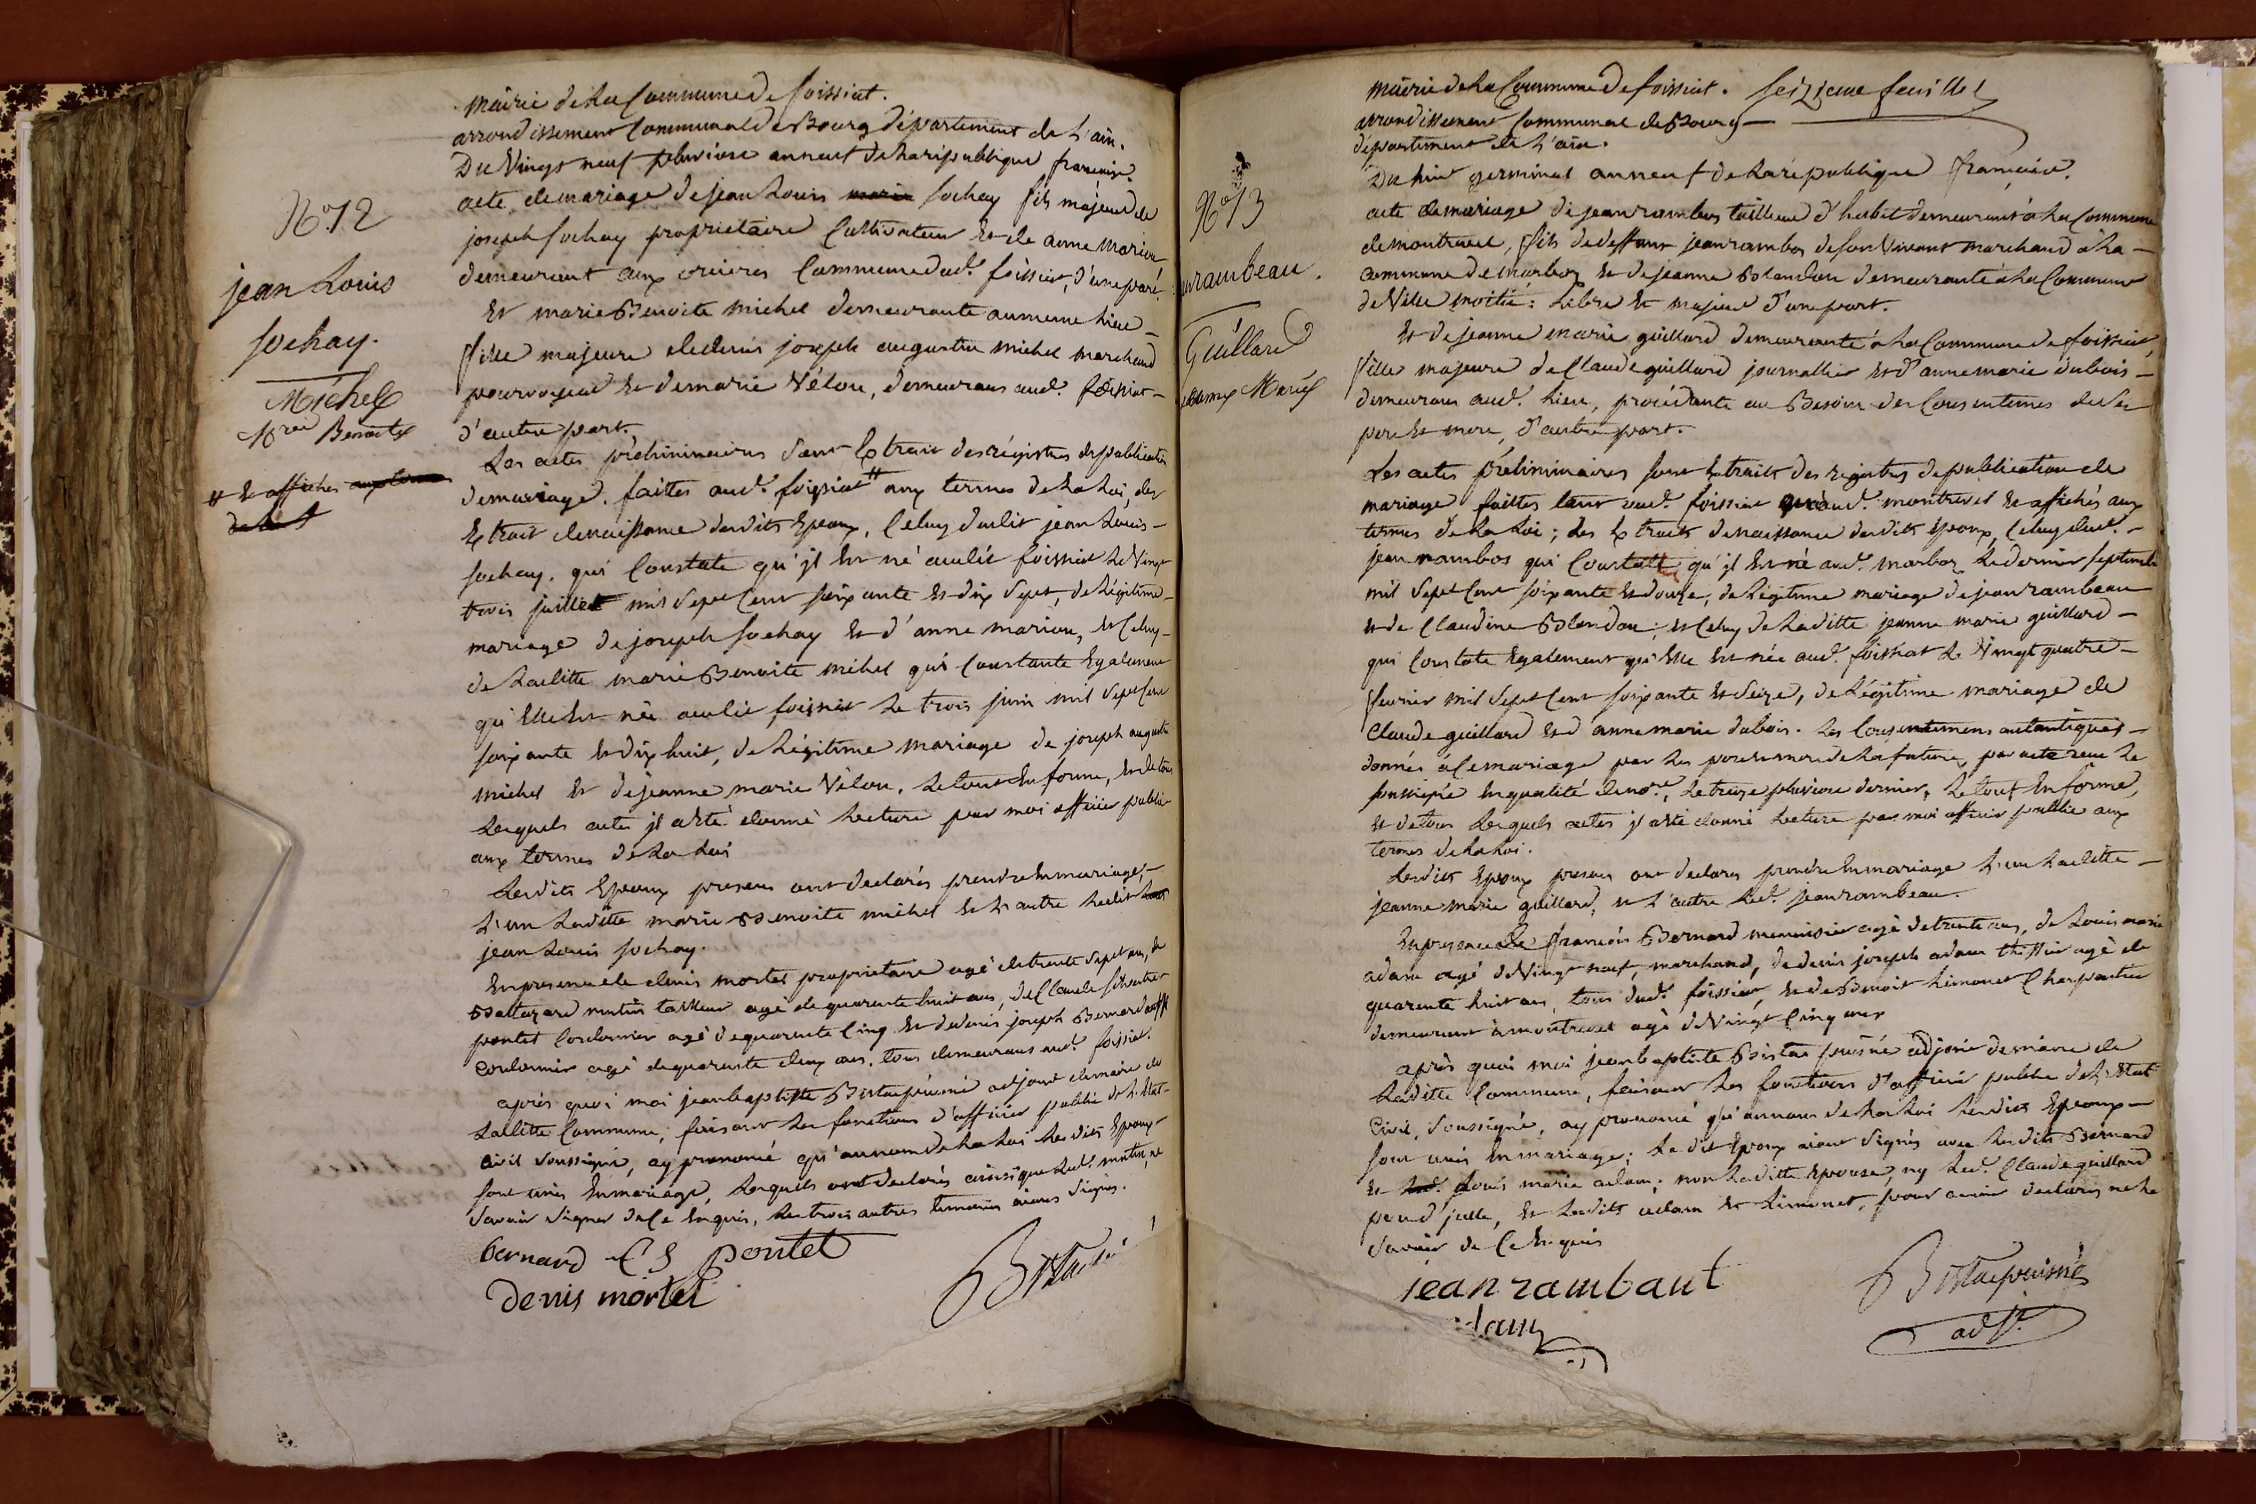 Mairie de la Commune de foissiat.
arrondissement Communal de Bourg département de L'ain.
Du Vingt neuf pluviose an neuf de la république francaise.
acte de mariage de jean Louis marie sochay fils majeur de
joseph sochay proprietaire Cultivateur et de anne Marion
demeurant aux orieres Commune dud. foissiat, d'une part.
Et marie Benoite Michel demeurante au meme lieu
fille majeure de denis joseph augustin Michel Marchand
pourvoyeur et de marie Vélou, demeurans aud. foissiat
d'autre part.
Les actes préliminaires sont Extrait des régistres de publication
de mariage. faittes aud. foissiat # aux termes de la Loi, des
Extrait de naissance desdits Epoux, Celuy dudit jean Louis
sochay, qui Constate qu'il Est né audit foissiat Le Vingt
trois juillet mil Sept Cent soixante et dix Sept, de légitime
mariage de joseph sochay et d'anne marion, et Celuy
de Laditte marie Benoite michel qui Constate Egalement
qu'Elle Est née audit foissiat Le trois juin mil Sept Cent
soixante et dix huit, de légitime mariage de joseph augustin
michel et de jeanne marie Vélou, Le tout En forme, et de tous
Lesquels actes il a été donné Lecture par moi officier public
aux termes de La Loi
Lesdits Epoux presens ont declarés prendre En mariage,
L'un Laditte marie Benoite michel et L'autre Ledit
jean Louis sochay.
En presence de denis mortel proprietaire agé de trente Sept ans, de
Baltazard mutin tailleur agé de quarente huit ans, de Claude Silvestre
pontet Cordonnier agé de quarente Cinq et de denis joseph Bernard
Cordonnier agé de quarente deux ans, tous demeurans aud. foissiat.
après quoi moi jean baptiste Bistac puisné adjoint de maire de
Laditte Commune, faisant Les fonctions d'officier public de L'Etat
Civil Soussigné, ay prononcé qu'au nom de La Loi Lesdits Epoux
sont unis En mariage, Lesquels ont declarés ainsi que Led. mutin, ne
Savoir Signer de Ce Enquis, Les trois autres temoins aiant Signés.
bernard C S pontet
Denis mortel
N° 12
jean Louis
sochay.
Michel
Benoite
# et affiches aux termes
de la L
Mairie de La Commune de foissiat. Seizieme feuillet
arrondissement Communal de Bourg
département de L'ain.
Du huit germinal an neuf de La république francaise.
acte de mariage de jean rambos tailleur d'habit demeurant à La Commune
de montrevel, fils de deffunt jean rambos de son Vivant marchand à La
Commune de Marboz et de jeanne Blandon demeurante à La Commune
de Ville moitié: Libre et majeur d'une part.
Et de jeanne marie guillard demeurante à La Commune de foissiat,
fille majeure de Claude guillard journallier et d'anne marie dubois
demeurans aud. Lieu, procédante au Besoin des Consentemens de Ses
pere et mere, d'autre part.
Les actes préliminaires sont Extraits des registres de publication de
mariage faittes tant aud. foissiat qu'aud. montrevel et affichés aux
termes de La Loi; des Extraits de naissance desdits Epoux, Celuy dud.
jean rambos qui Constate qu'il Est né aud. marboz Le dernier Septembre
mil Sept Cent soixante et douze, de Légitime mariage de jean rambeau
et de Claudine Blandon; et Celuy de Laditte jeanne marie guillard
qui Constate Egalement qu'Elle Est née aud. foissiat Le Vingt quatre
fevrier mil Sept Cent soixante et Seize, de Légitime mariage de
Claude guillard et d'anne marie dubois. Les Consentemens autantiques
donnés à Ce mariage par Les pere et mere de La future, par acte reçu Le
soussigné En qualité de not.re, Le treize pluviose dernier, Le tout En forme,
et de tous Lesquels actes il a été donné Lecture par moi officier public aux
termes de La Loi.
Lesdits Epoux presens ont declarés prendre En mariage L'un Laditte
jeanne marie guillard, et L'autre Led. jean rambeau.
En presence de francois Bernard menuisier agé de trente ans, de Louis marie
adam agé de Vingt neuf, marchand, de denis joseph adam agé de
quarente huit ans, tous dud. foissiat, et de Benoit Limonet Charpentier
demeurant à montrevel agé de Vingt Cinq ans
après quoi moi jean baptiste Bistac puisné adjoint de maire de
Laditte Commune, faisant Les fonctions d'officier public de L'Etat
Civil, Soussigné, ay prononcé qu'au nom de La Loi Lesdits Epoux
sont unis En mariage; Le dit Epoux aiant Signés avec Lesdits Bernard
et Louis marie adam; non Laditte Epouse, ny Led. Claude guillard
pere d'jcelle, et Lesdits adam et Limonet, pour avoir declarés ne Le
Savoir de Ce Enquis
jean rambaut
Bistac puisné
adam
adjt.
N° 13
rambeau.
Guillard
jeanne Marie